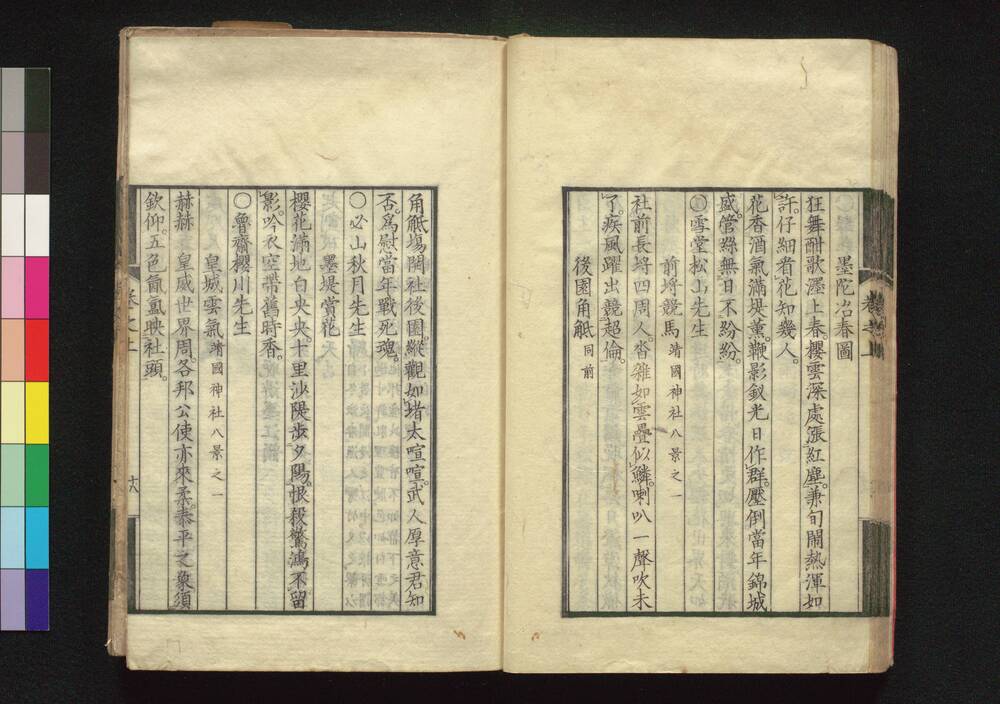 墨陀冶春圖
狂舞酣歌墨上春。櫻雲深處漲紅塵。兼旬鬧熱渾如
許。仔細看花知幾人。
花香酒氣滿堤薰。鞭影釵光日作群。壓倒當年錦城
盛。管絲無日不紛紛。
〇雪堂松山先生
前埒競馬 靖國神社八景之一
社前長埒四周人。沓雜如雲疊似鱗。喇叭一聲吹未
了。疾風躍出競超倫。
後園角觝 同前
角觝場開社後園。縱觀如堵太喧喧。武人厚意君知
否。爲慰當年戰死魂。
〇必山秋月先生
墨堤賞花
櫻花滿地白央央。十里沙隄步夕陽。恨殺驚鴻不留
影。吟衣空帶舊時香。
〇魯齋櫻川先生
皇城雲氣 靖國神社八景之一
赫赫皇威世界周。各邦公使亦來柔。泰平之象須
欽仰。五色氤氳映社頭。
卷之上
十六